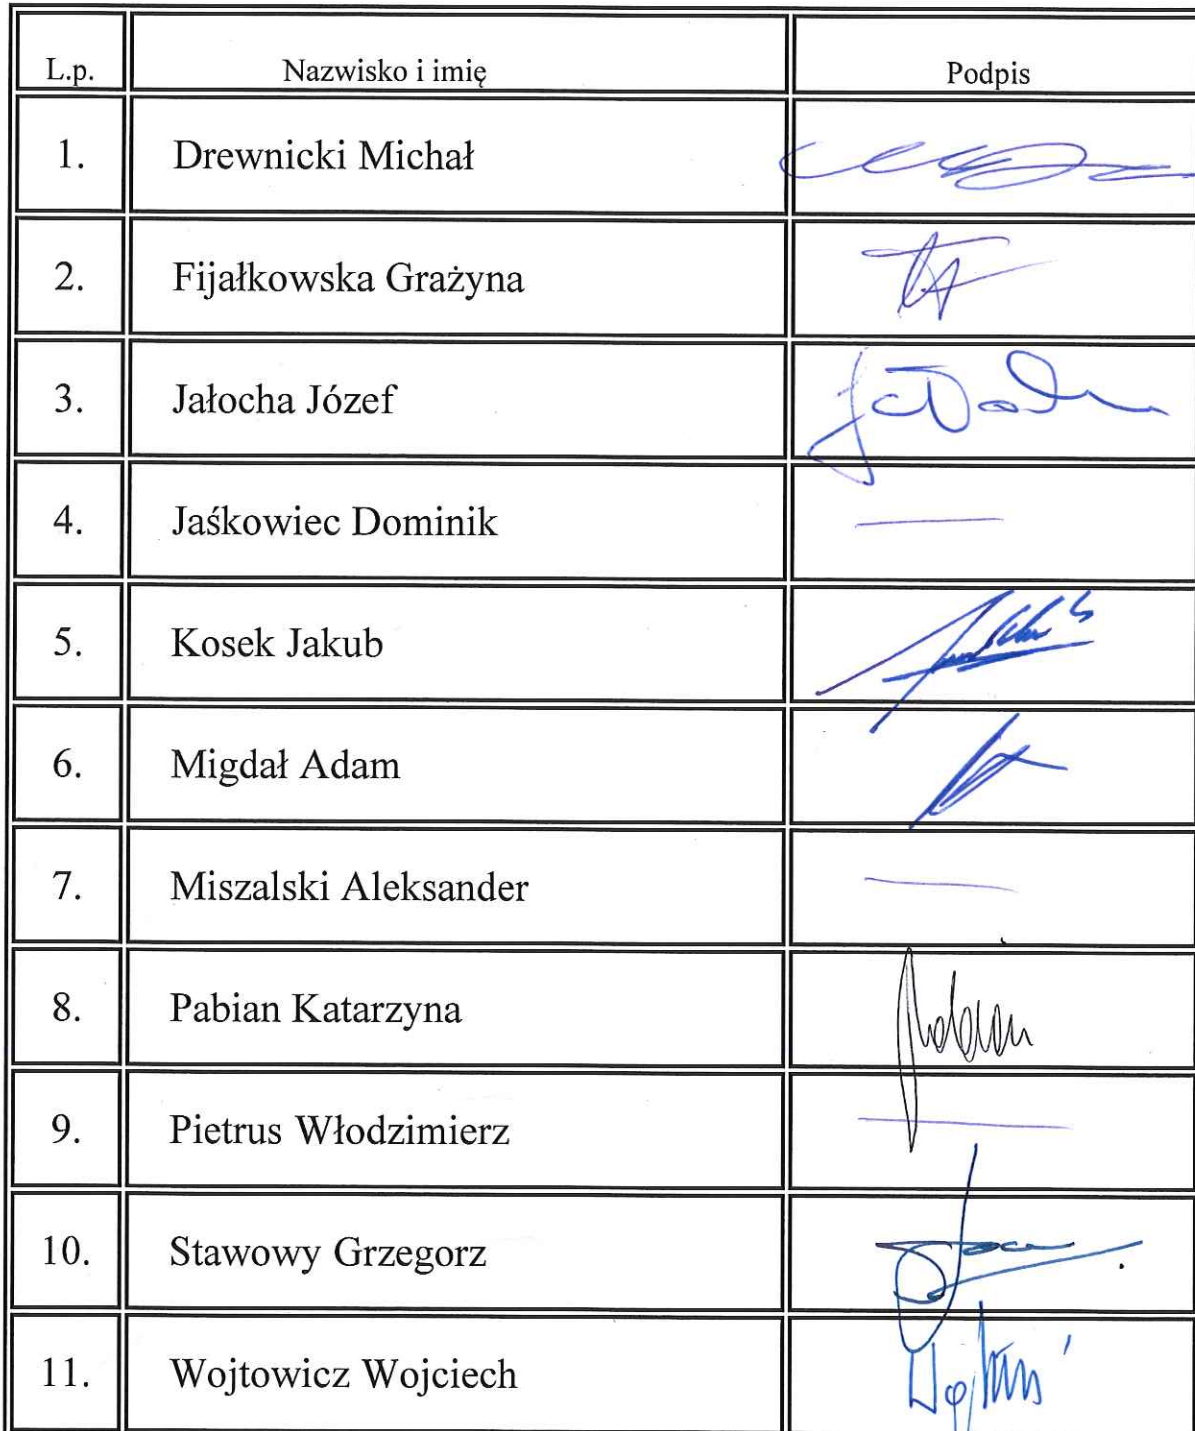 L.p. Nazwisko i imię Podpis
1. Drewnicki Michał
2. Fijałkowska Grażyna
3. Jałocha Józef
4. Jaśkowiec Dominik —
5. Kosek Jakub
6. Migdał Adam
7. Miszalski Aleksander —
8. Pabian Katarzyna
9. Pietrus Włodzimierz —
10. Stawowy Grzegorz
11. Wojtowicz Wojciech